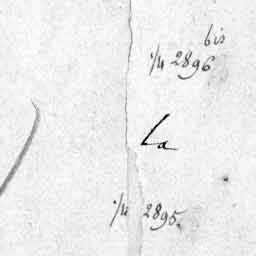 bis
1/4 2896
La
1/4 2895.